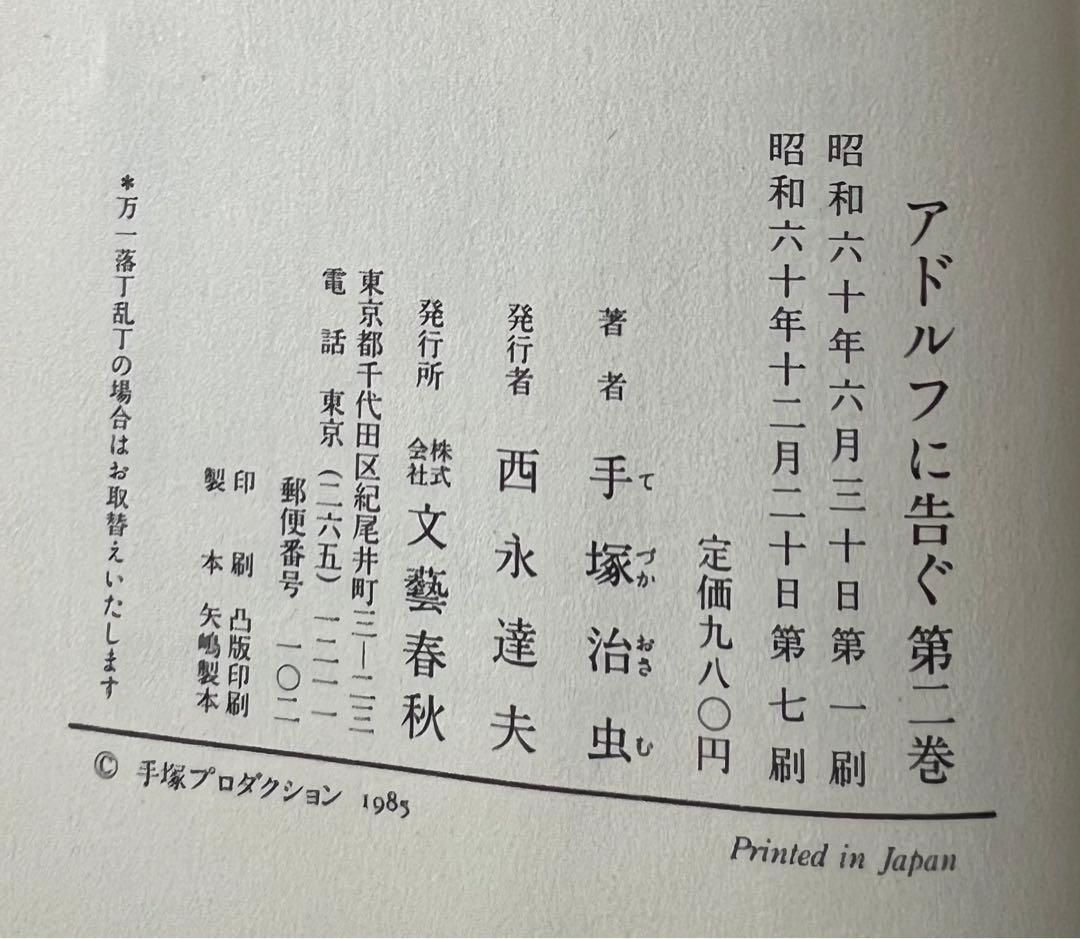 アドルフに告ぐ 第二巻
昭和六十年六月三十日第一刷
昭和六十年十二月二十日第七刷
定価九八〇円
著者 手塚治虫
てづかおさむ
発行者 西永達夫
発行所 株式会社文藝春秋
東京都千代田区紀尾井町三―二三
電話 東京(二六五)一二一一
郵便番号 一〇二
印刷 凸版印刷
製本 矢嶋製本
*万一落丁乱丁の場合はお取替えいたします
© 手塚プロダクション 1985
Printed in Japan